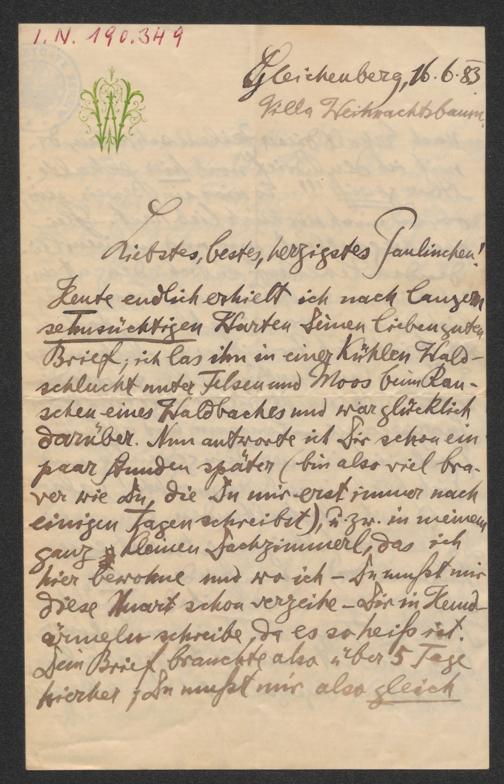 I. N. 190.349
Gleichenberg, 16.6.83
Villa Weihnachtsbaum.
Liebstes, bestes, herzigstes Paulinchen!
Heute endlich erhielt ich nach langem
sehnsüchtigen Warten Deinen lieben guten
Brief; ich las ihn in einer kühlen Wald-
schlucht unter Felsen und Moos beim Rau-
schen eines Waldbaches und war glücklich
darüber. Nun antworte ich Dir schon ein
paar Stunden später (bin also viel bra-
ver wie Du, die Du mir erst immer nach
einigen Tagen schreibst), u. zw. in meinem
ganz kleinen Dachzimmerl, das ich
hier bewohne und wo ich – Du mußt mir
diese Unart schon verzeihe – Dir in Hemd-
ärmeln schreibe, da es so heiß ist.
Dein Brief brauchte also über 5 Tage
hierher; Du mußt mir also gleich